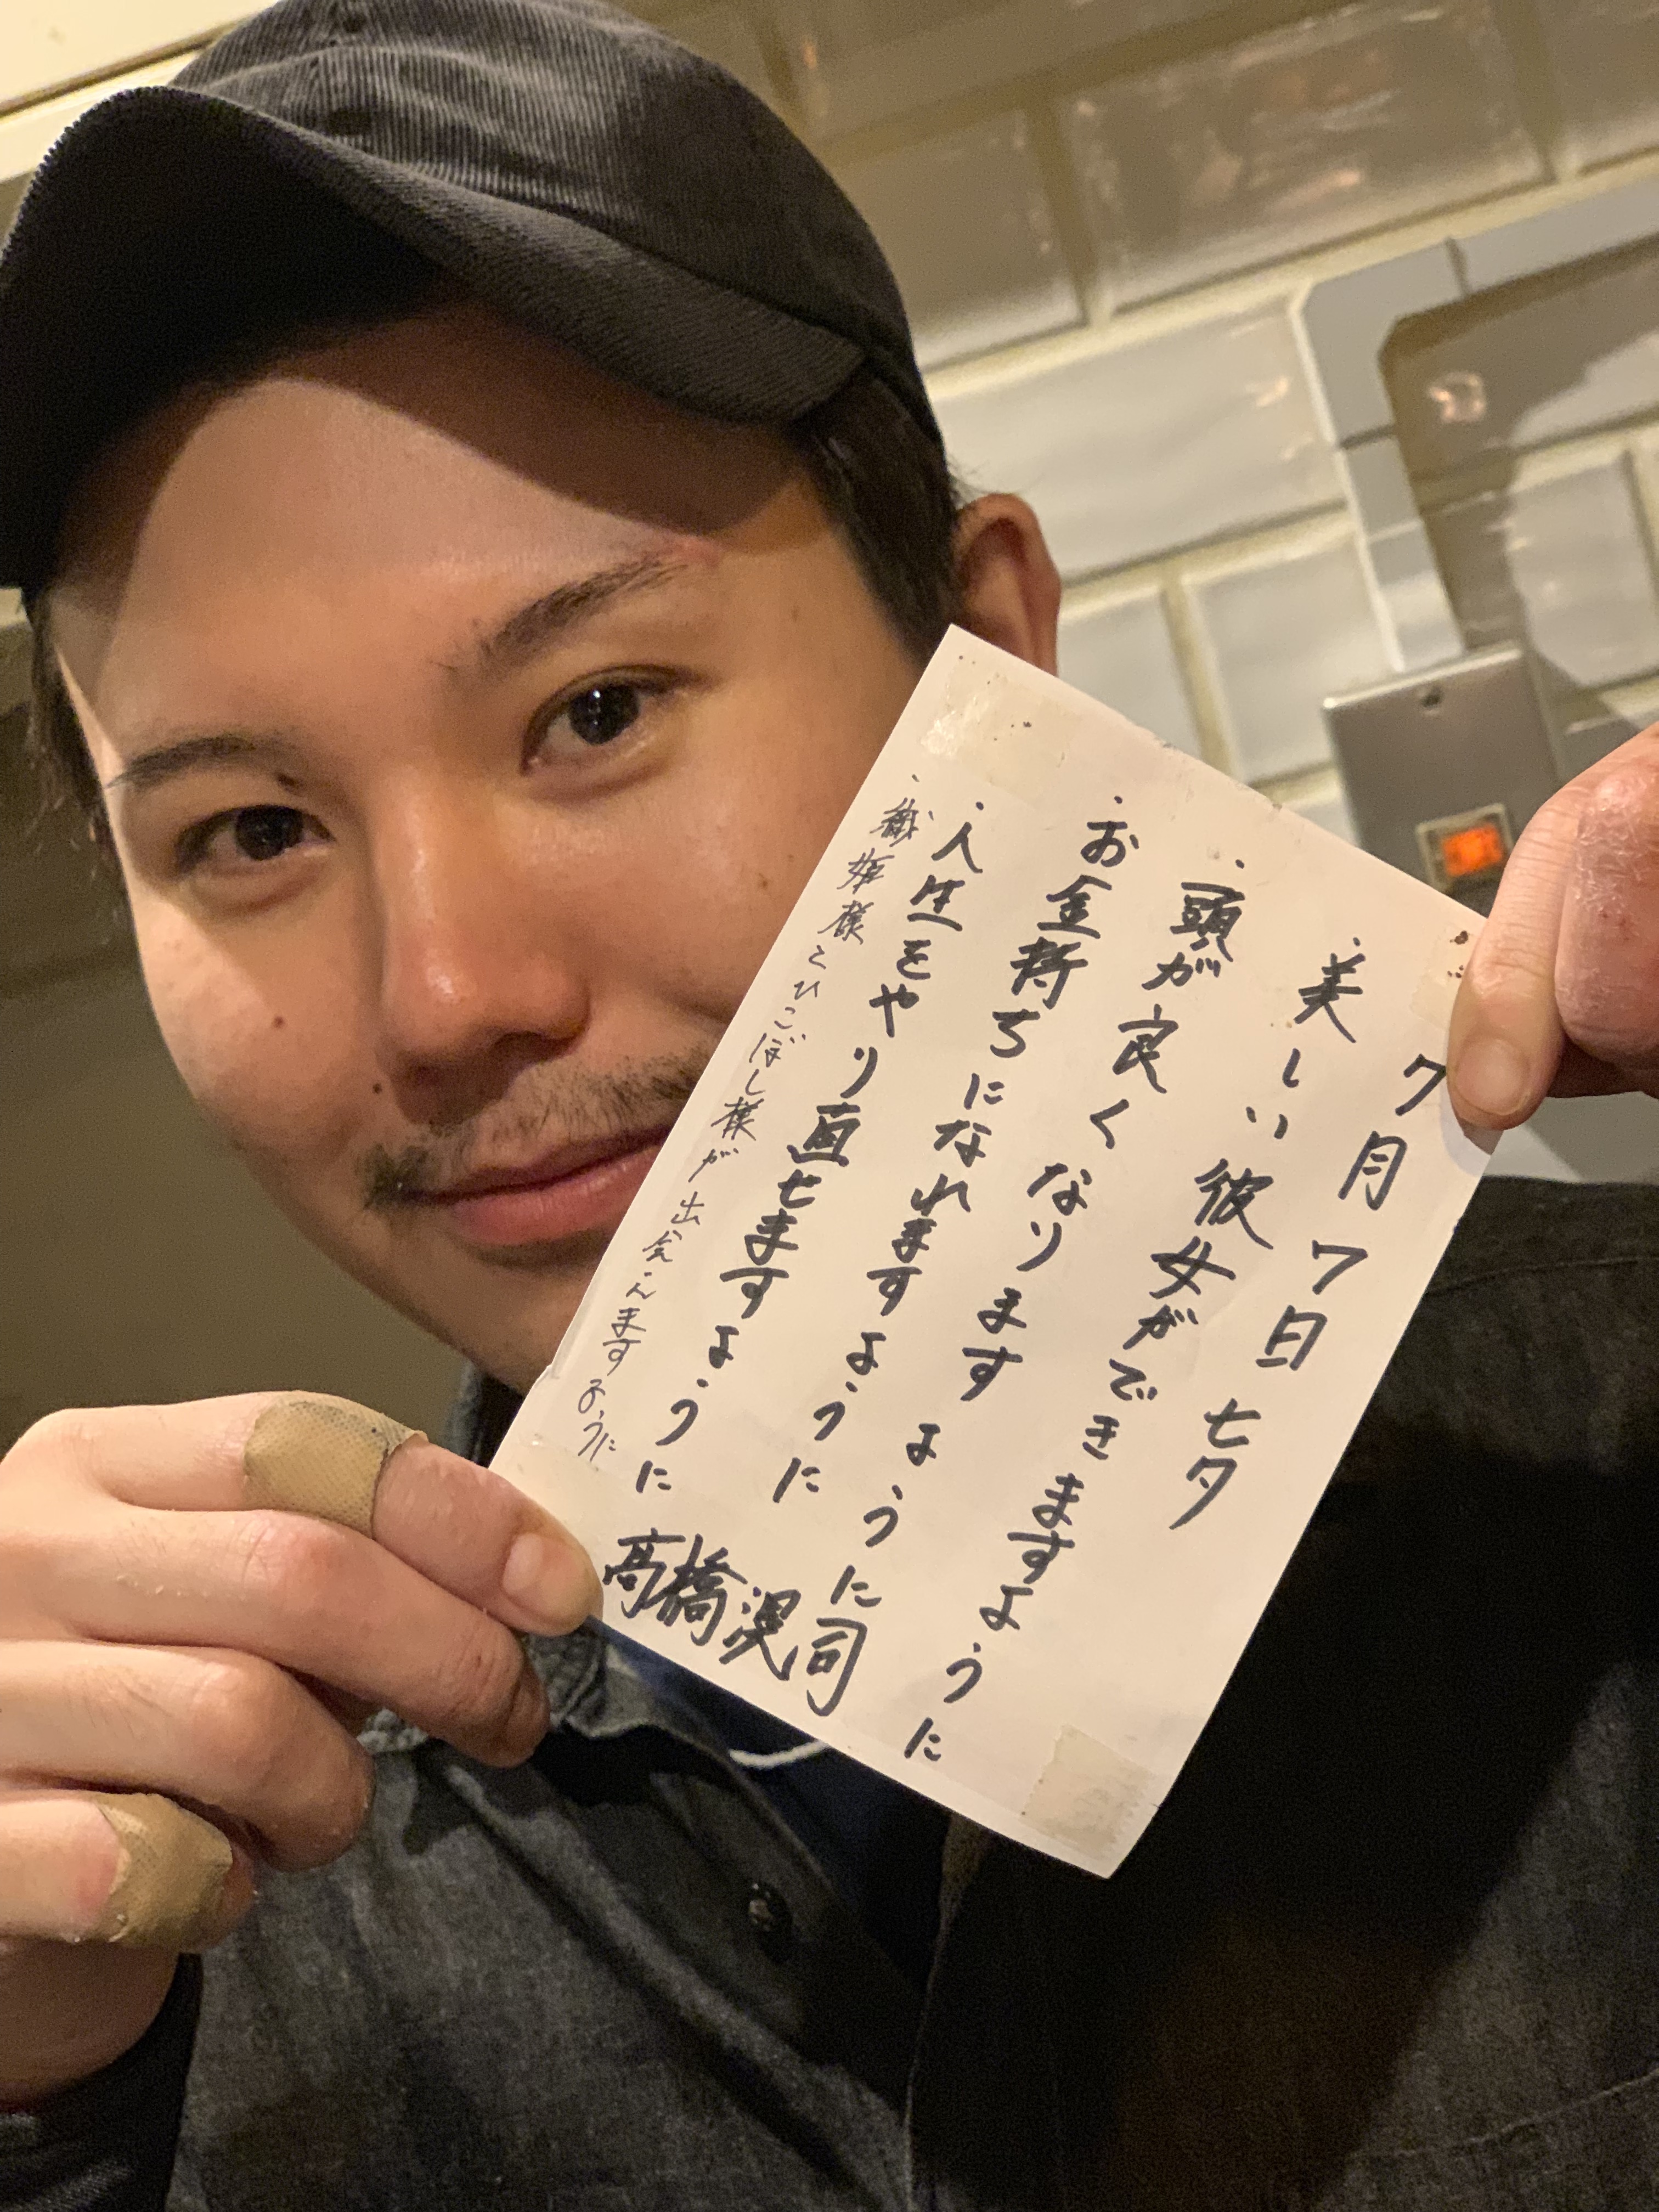 7月7日 七夕
・美しい彼女ができますように
・頭が良くなりますように
・お金持ちになれますように
・人生をやり直せますように
・織姫様とひこぼし様が出会えますように
高橋滉司